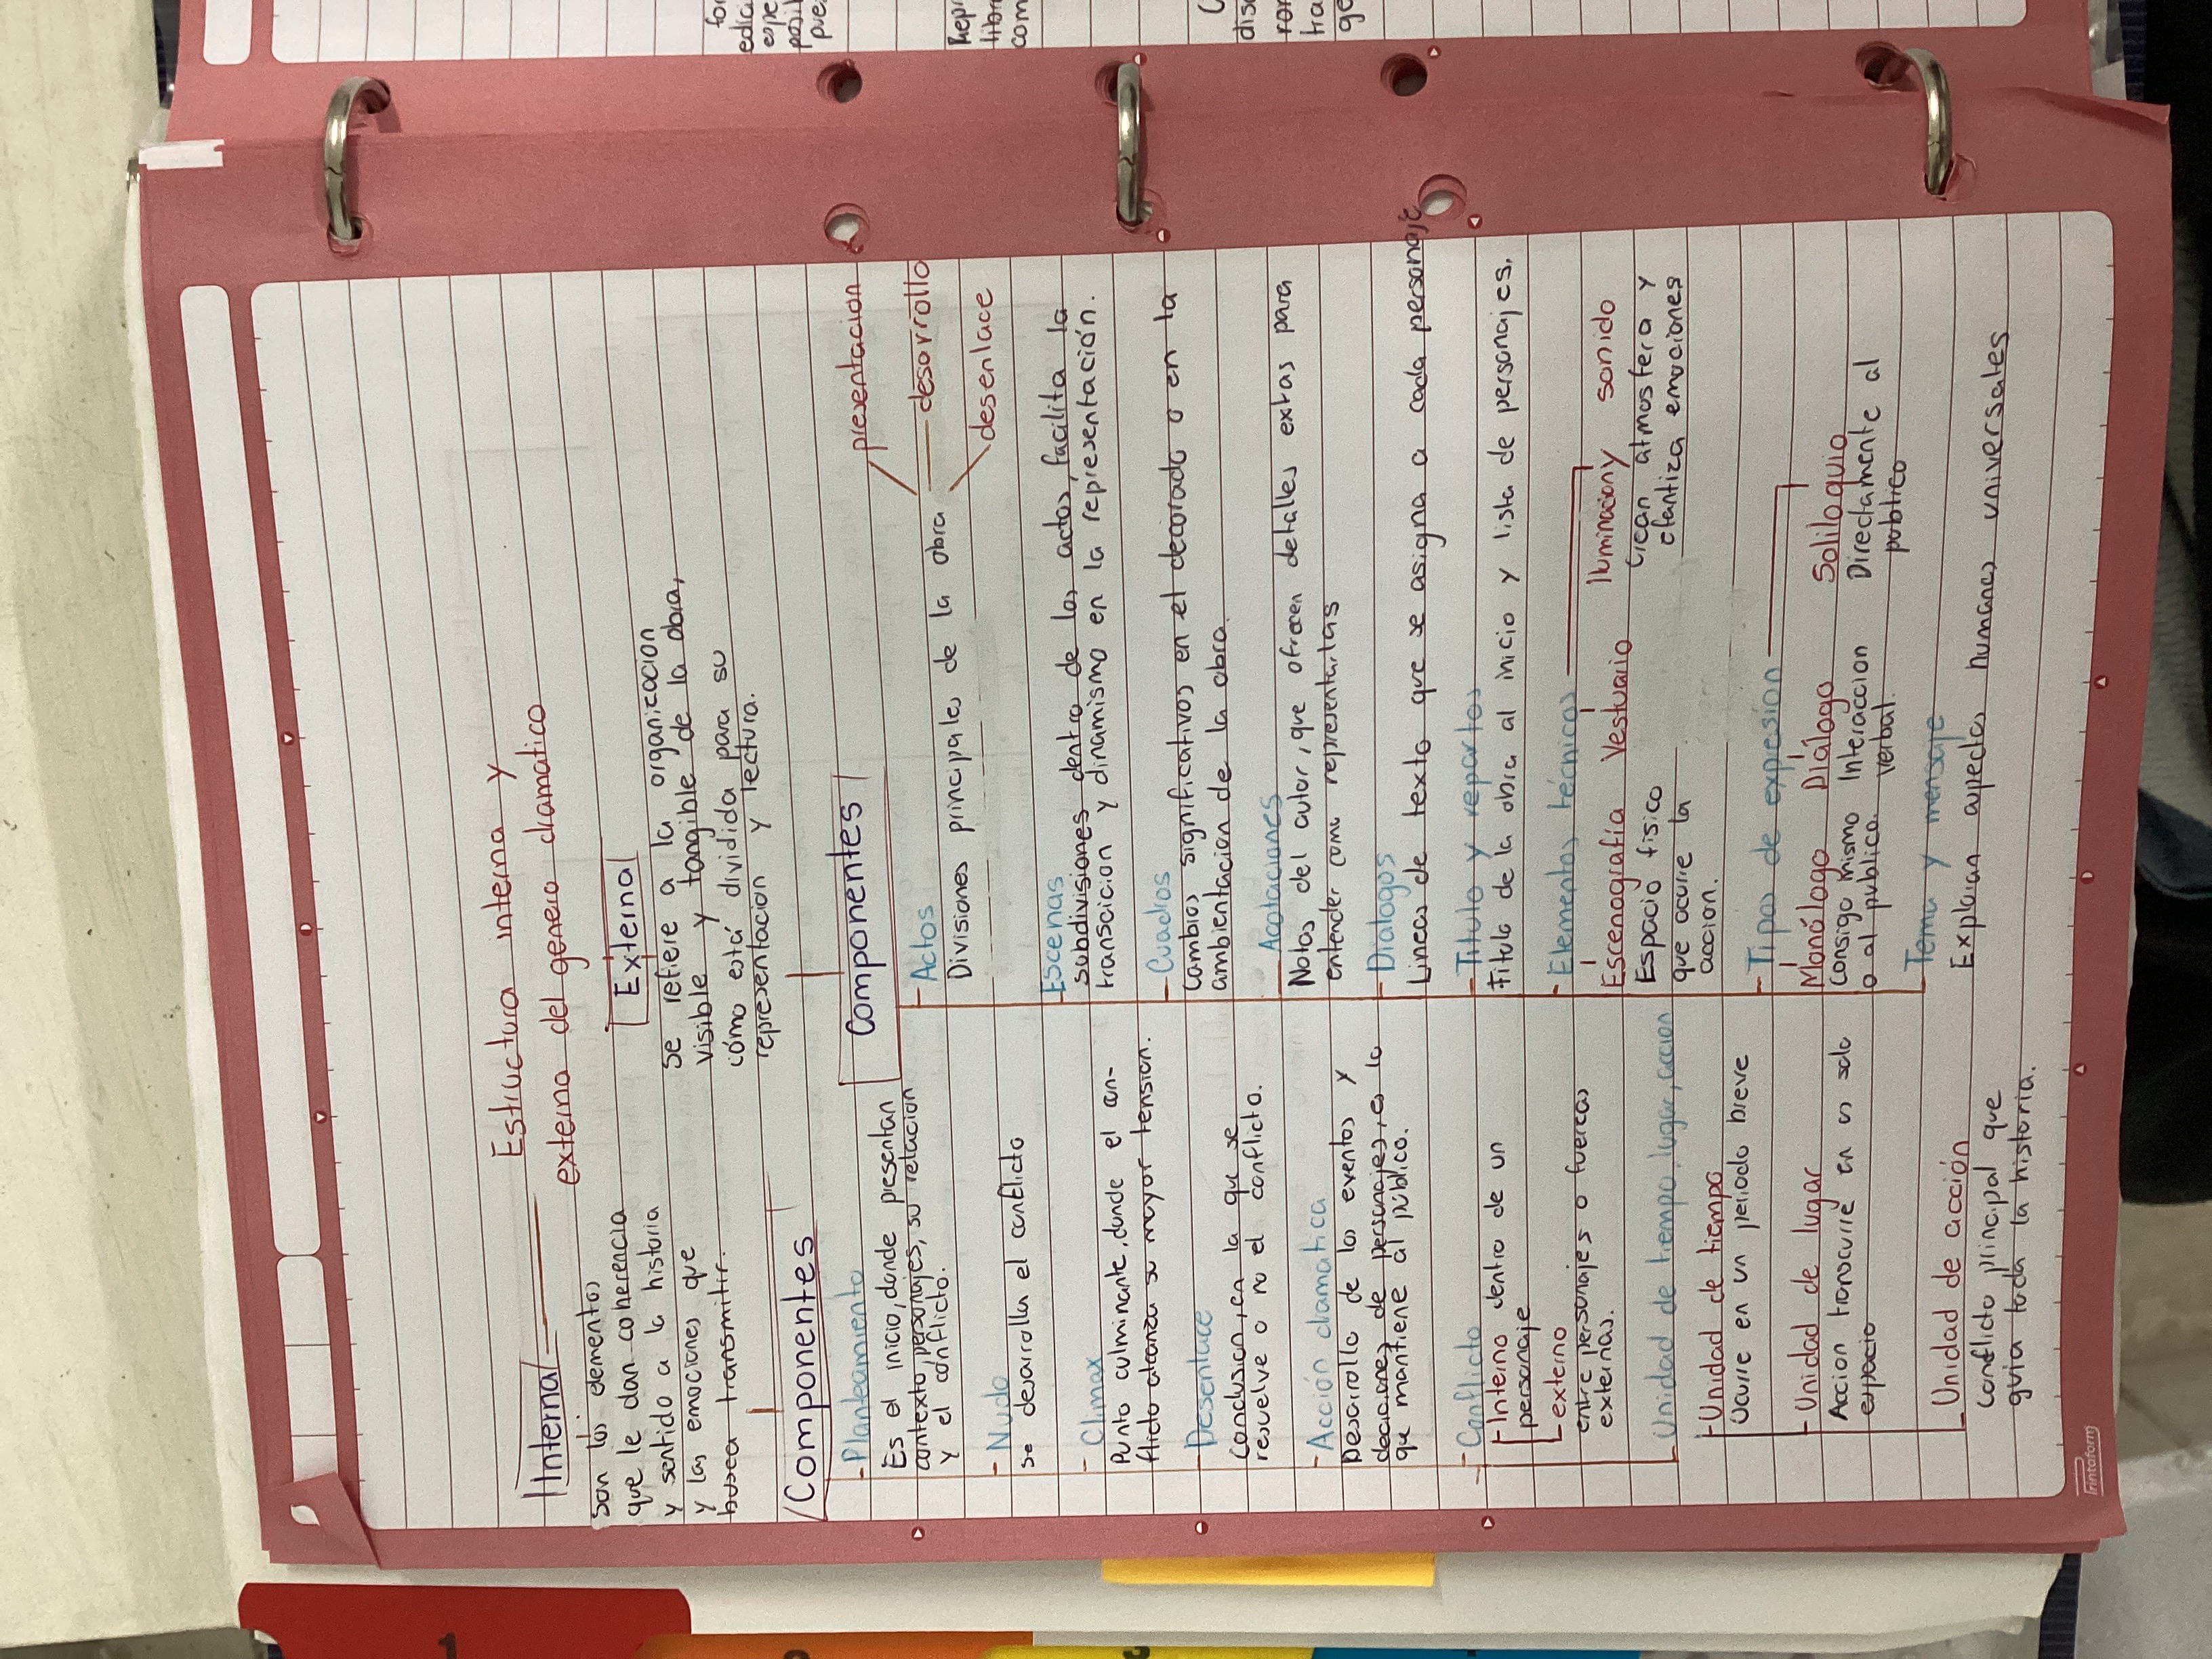 Estructura interna y
externa del genero dramatico
Interna
Son los elementos
que le dan coherencia
y sentido a la historia
y las emociones que
busca transmitir.
Componentes
- Planteamiento
Es el inicio, donde presentan
contexto, personajes, su relacion
y el conflicto.
- Nudo
se desarrolla el conflicto
- Climax
Punto culminante, donde el con-
flicto alcanza su mayor tension.
- Desenlace
Conclusion, en la que se
resuelve o no el conflicto.
- Acción dramatica
Desarrollo de los eventos y
decisiones de personajes, es lo
que mantiene al público.
- Conflicto
- Interno dentro de un
personaje
- externo
entre personajes o fuerzas
externas.
- Unidad de tiempo, lugar, accion
- Unidad de tiempo
Ocurre en un periodo breve
- Unidad de lugar
Accion transcurre en un solo
espacio
- Unidad de acción
Conflicto principal que
guia toda la historia.
Externa
Se refiere a la organizacion
visible y tangible de la obra,
cómo está dividida para su
representacion y lectura.
Componentes
- Actos
Divisiones principales de la obra
presentacion
desarrollo
desenlace
Escenas
subdivisiones dentro de los actos, facilita la
transicion y dinamismo en la representación.
- Cuadros
Cambios significativos en el decorado o en la
ambientacion de la obra.
- Acotaciones
Notas del autor, que ofrecen detalles extras para
entender como representarlas
- Dialogos
Lineas de texto que se asigna a cada personaje
- Titulo y repartos
Titulo de la obra al inicio y lista de personajes.
- Elementos técnicos
Escenografía Vestuario Iluminacion y sonido
Espacio fisico
que ocurre la
accion.
Crean atmosfera y
efantiza emociones
- Tipos de expesion
Monólogo Diálogo Soliloquio
Consigo mismo
o al publico
Interaccion
verbal.
Directamente al
publico
Tema y mensaje
Exploran aspectos humanos universales
Printaform
1